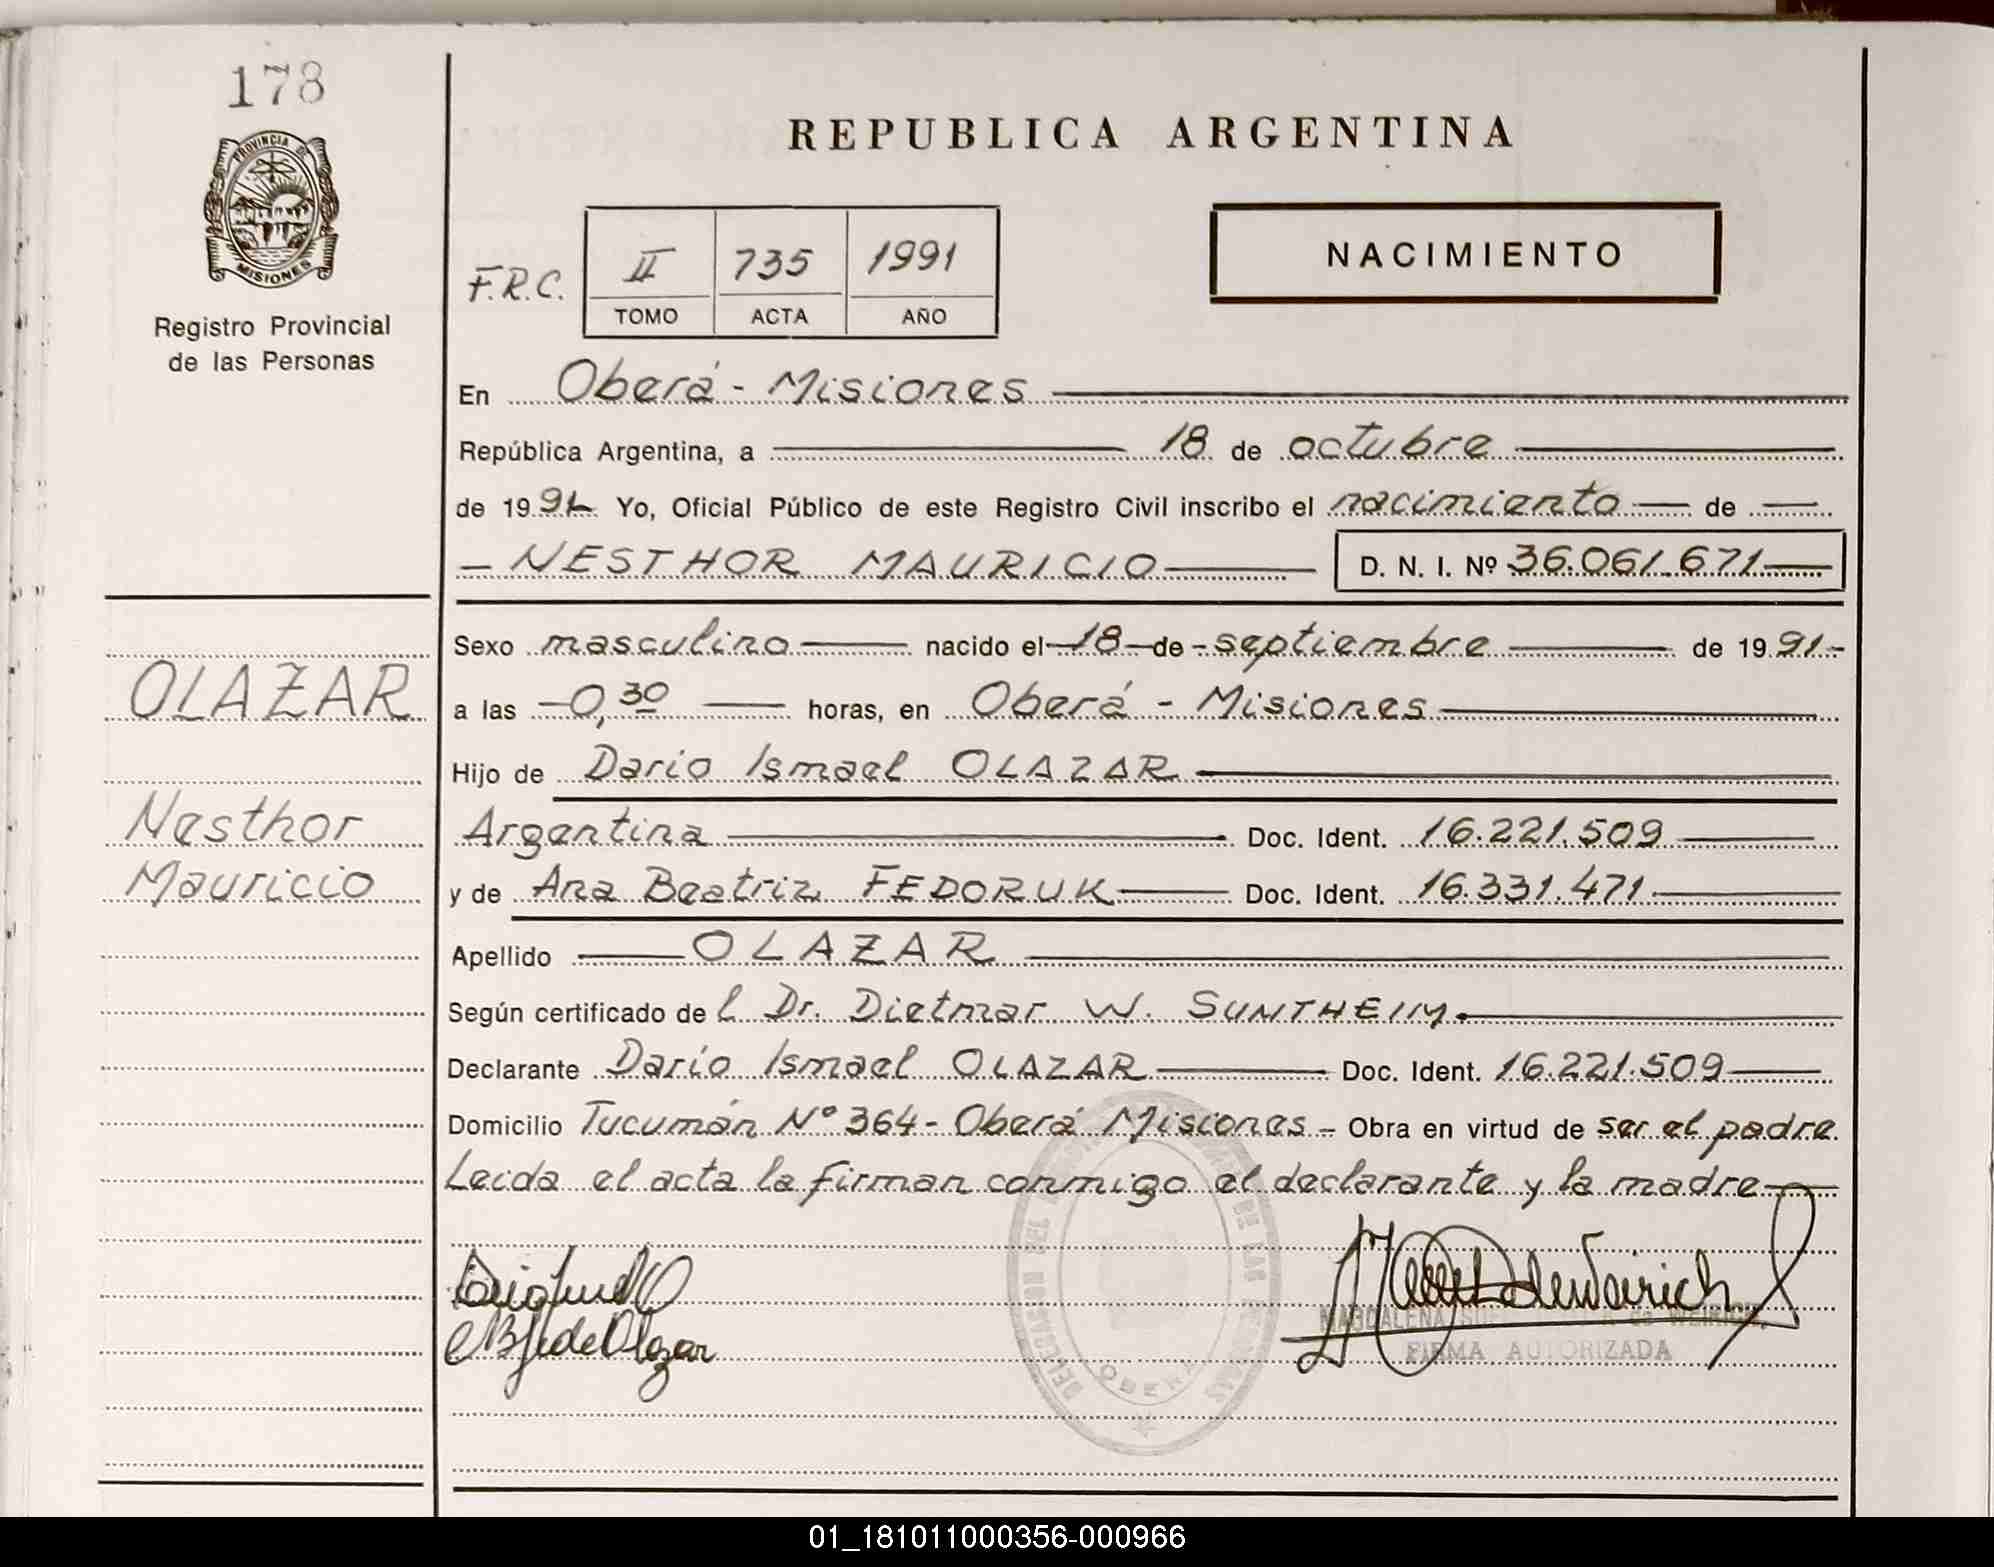 178
PROVINCIA DE
MISIONES
Registro Provincial
de las Personas
REPUBLICA ARGENTINA
NACIMIENTO
F.R.C.
II 735 1991
TOMO ACTA AÑO
En Oberá - Misiones
República Argentina, a 18 de octubre
de 1991 Yo, Oficial Público de este Registro Civil inscribo el nacimiento de
NESTHOR MAURICIO D. N. I. Nº 36.061.671
OLAZAR
Nesthor
Mauricio
Sexo masculino nacido el 18 de septiembre de 1991
a las 0,30 horas, en Oberá - Misiones
Hijo de Dario Ismael OLAZAR
Argentina Doc. Ident. 16.221.509
y de Ana Beatriz FEDORUK Doc. Ident. 16.331.471
Apellido OLAZAR
Según certificado del Dr. Dietmar W. SUNTHEIM.
Declarante Darío Ismael OLAZAR Doc. Ident. 16.221.509
Domicilio Tucumán Nº 364 - Oberá Misiones - Obra en virtud de ser el padre
Leida el acta la firman conmigo el declarante y la madre
DELEGACION DEL DE LAS PERSONAS
OBERA
MAGDALENA de WEIRICH
FIRMA AUTORIZADA
01_181011000356-000966